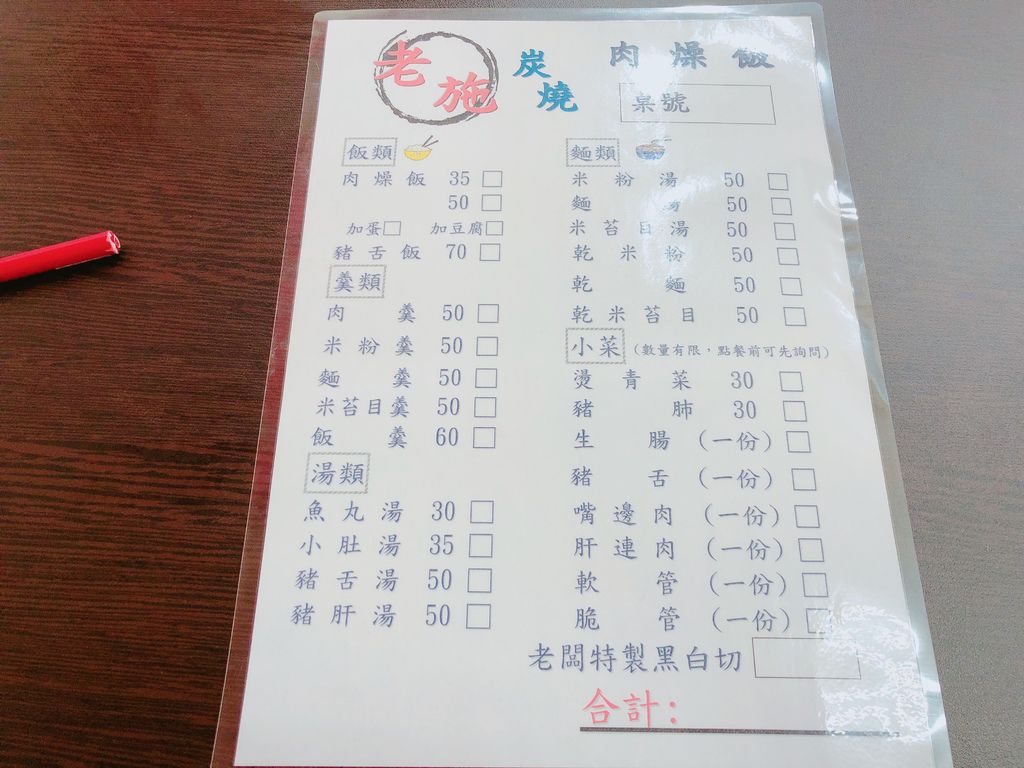 老施 炭燒 肉燥飯
桌號
飯類
肉燥飯 35 □
50 □
加蛋□ 加豆腐□
豬舌飯 70 □
羹類
肉羹 50 □
米粉羹 50 □
麵羹 50 □
米苔目羹 50 □
飯羹 60 □
湯類
魚丸湯 30 □
小肚湯 35 □
豬舌湯 50 □
豬肝湯 50 □
麵類
米粉湯 50 □
麵湯 50 □
米苔目湯 50 □
乾米粉 50 □
乾麵 50 □
乾米苔目 50 □
小菜(數量有限，點餐前可先詢問)
燙青菜 30 □
豬肺 30 □
生腸(一份)□
豬舌(一份)□
嘴邊肉(一份)□
肝連肉(一份)□
軟管(一份)□
脆管(一份)□
老闆特製黑白切
合計: